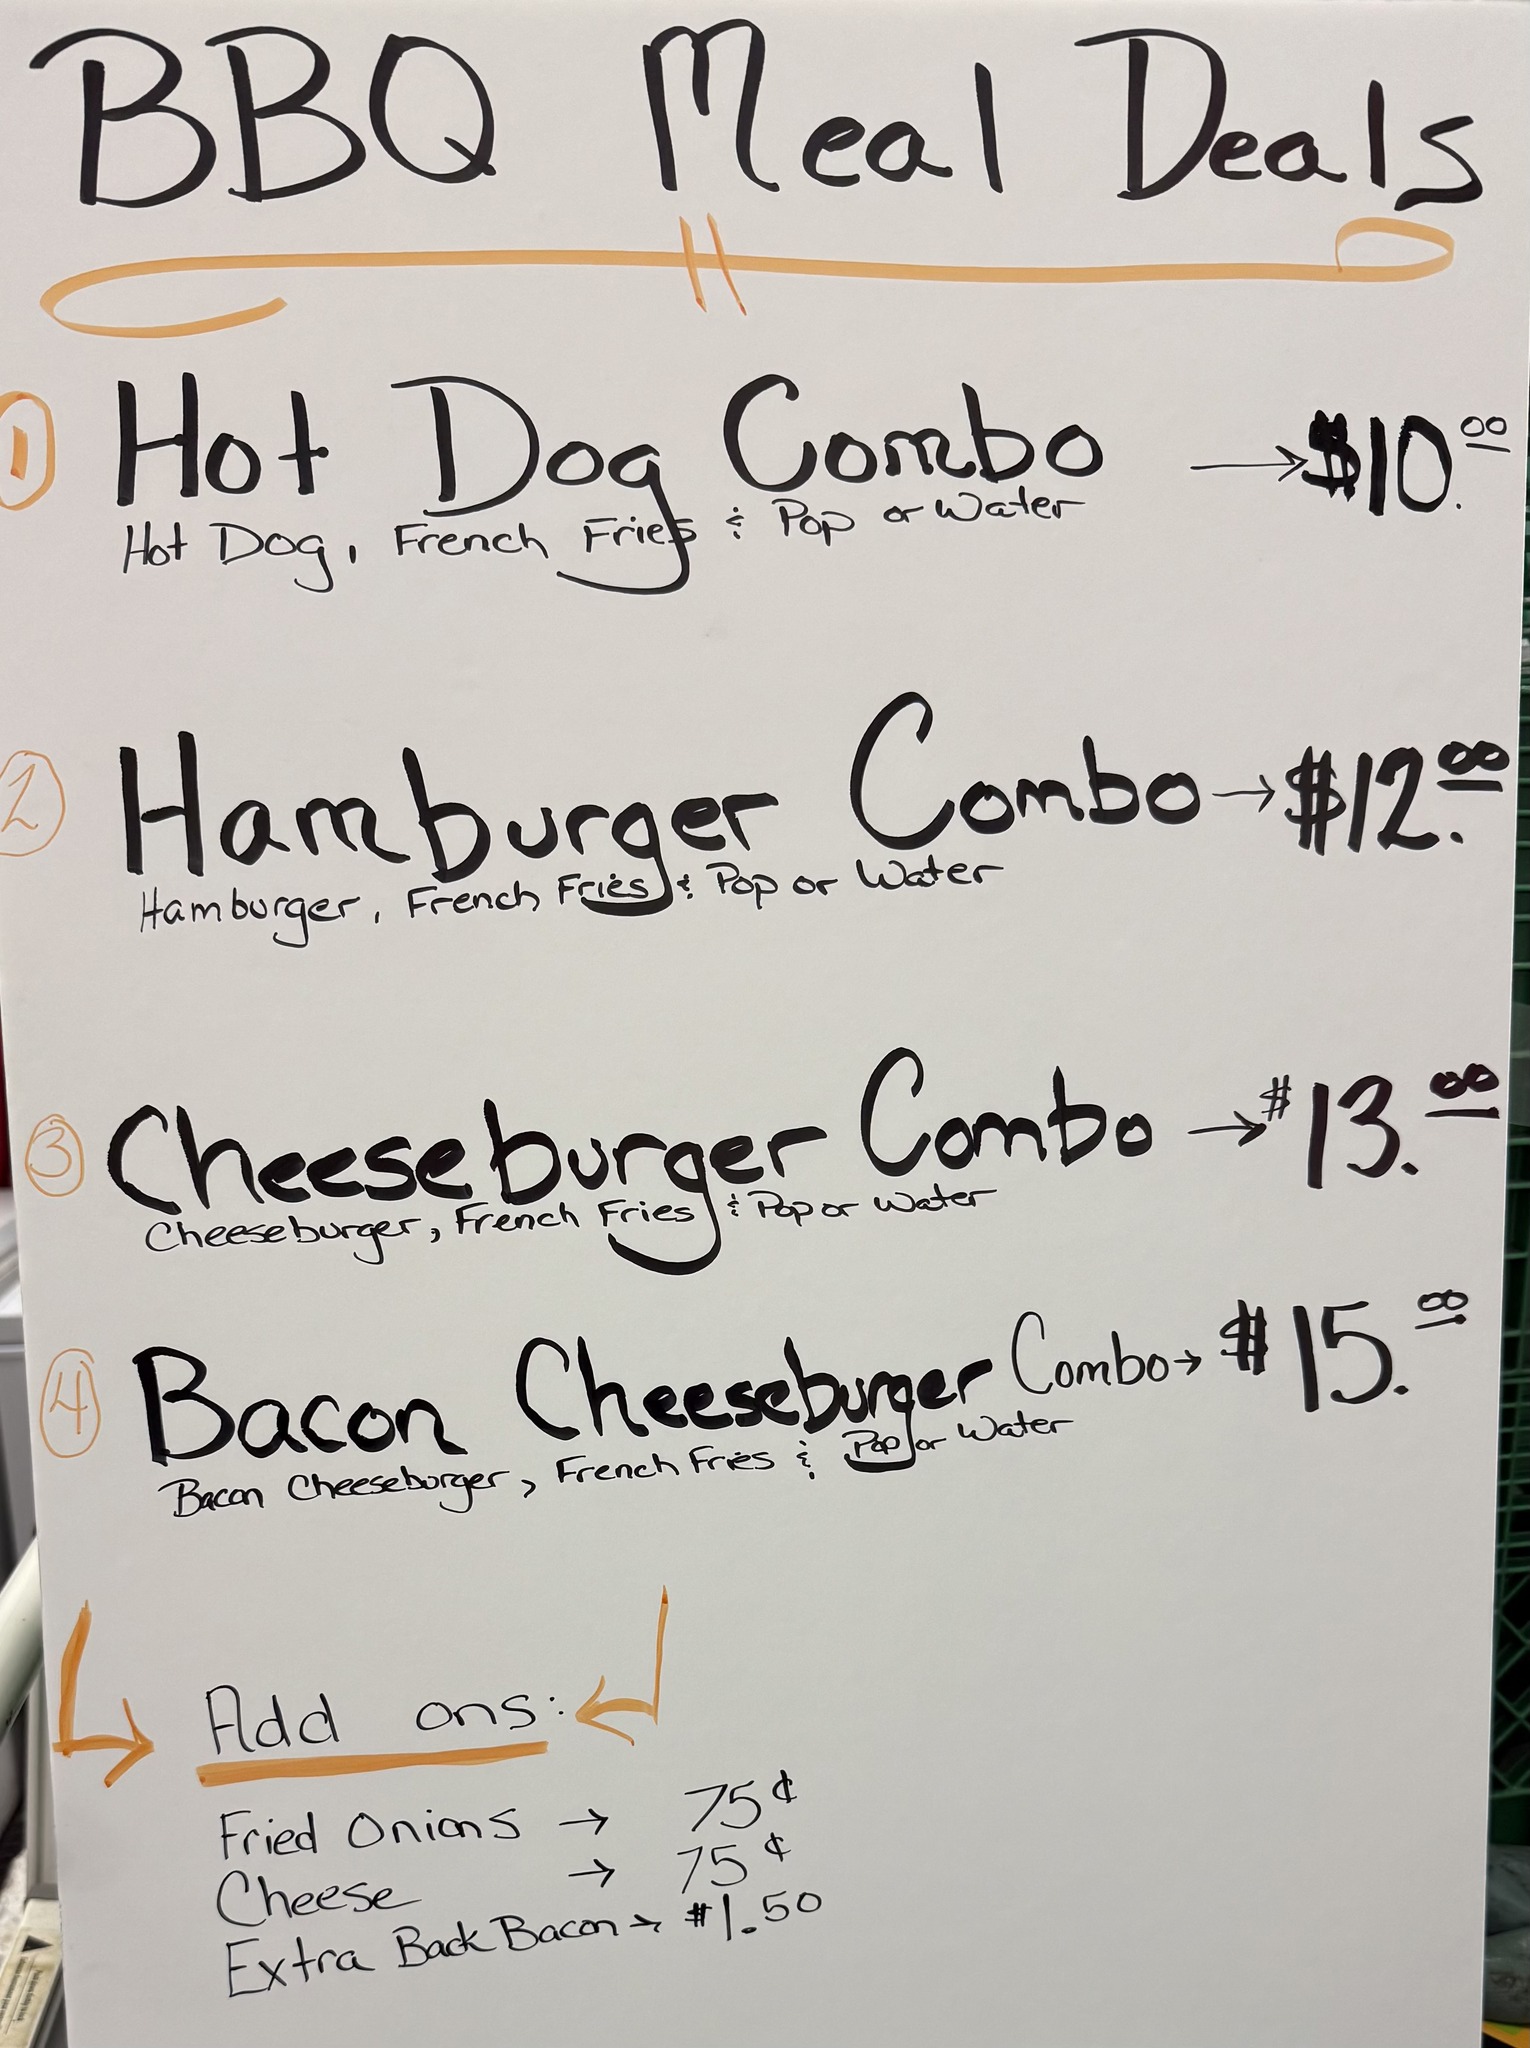 BBQ Meal Deals
1 Hot Dog Combo → $10.00
Hot Dog, French Fries & Pop or Water
2 Hamburger Combo → $12.00
Hamburger, French Fries & Pop or Water
3 Cheeseburger Combo → $13.00
Cheeseburger, French Fries & Pop or Water
4 Bacon Cheeseburger Combo → $15.00
Bacon Cheeseburger, French Fries & Pop or Water
Add ons:
Fried Onions → 75¢
Cheese → 75¢
Extra Back Bacon → $1.50